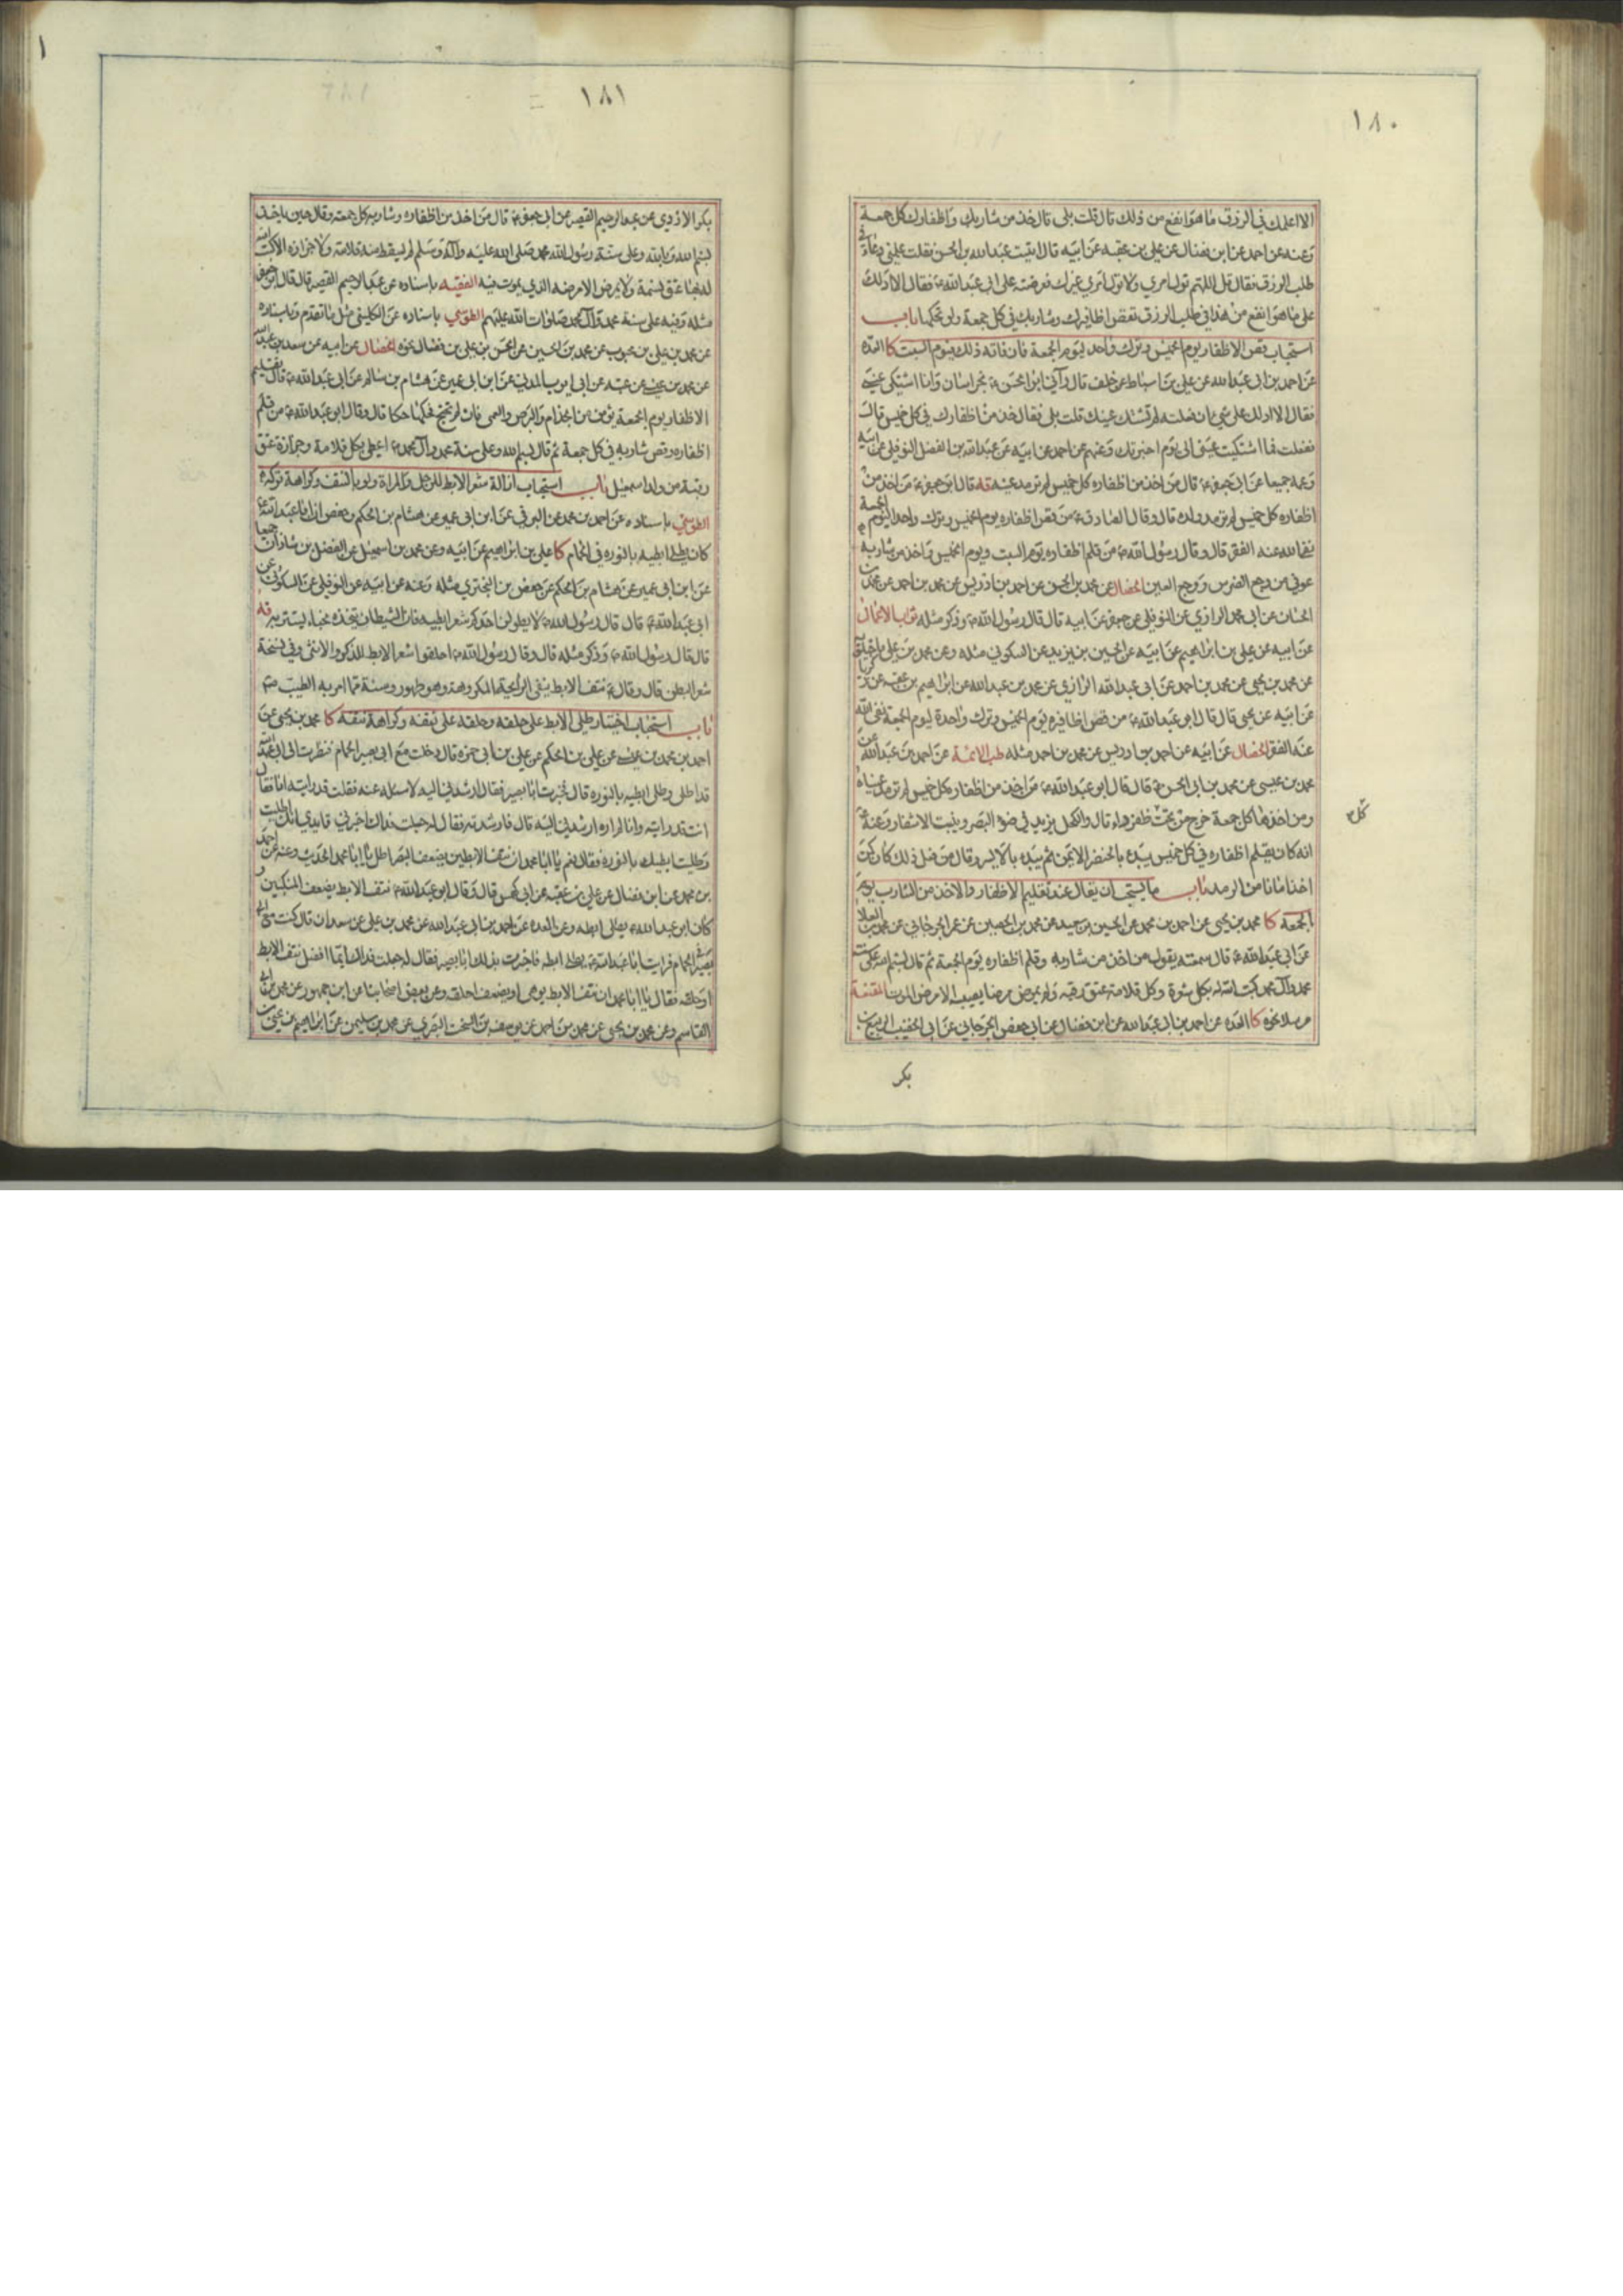 ١٨٠
الا اعلمك في الرزق ما هو انفع من ذلك قال قلت بلى قال خذ من شاربك واظفارك كل جمعة
وعنه عن احمد عن ابن فضال عن علي بن عقبة عن ابيه قال اتيت عبد الله بن الحسن فقلت علمني دعاء في
طلب الرزق فقال قل اللهم تول امري ولا تول امري غيرك فعرضته على ابي عبد الله ع فقال الا ادلك
على ما هو انفع من هذا في طلب الرزق تقص اظافيرك وشاربك في كل جمعة ولو بحكها باب
استحباب قص الاظفار يوم الخميس وترك واحد ليوم الجمعة فان فاته ذلك فيوم السبت كا العدة
عن احمد بن ابي عبد الله عن علي بن اسباط عن خلف قال رآني ابو الحسن ع بخراسان وانا اشتكي عيني
فقال الا ادلك على شي ان فعلته لم تشتك عينك قلت بلى فقال خذ من اظفارك في كل خميس قال
ففعلت فما اشتكيت عيني الى يوم اخبرتك وعنهم عن احمد عن ابيه عن عبد الله بن الفضل النوفلي عن ابيه
وعمه جميعا عن ابي جعفر ع قال من اخذ من اظفاره كل خميس لم ترمد عينه قه قال ابو جعفر ع من اخذ من
اظفاره كل خميس لم ترمد ولده قال وقال الصادق ع من قص اظفاره يوم الخميس وترك واحدا ليوم الجمعة
نفى الله عنه الفقر قال وقال رسول الله ص من قلم اظفاره يوم السبت ويوم الخميس واخذ من شاربه
عوفي من وجع الضرس ووجع العين الخصال عن محمد بن الحسن عن احمد بن ادريس عن محمد بن احمد عن محمد بن
الحسان عن ابي محمد الرازي عن النوفلي عن جعفر عن ابيه قال قال رسول الله ص وذكر مثله ثواب الاعمال
عن ابيه عن علي بن ابراهيم عن ابيه عن الحسين بن يزيد عن السكوني مثله وعن محمد بن علي ماجيلويه
عن محمد بن يحيى عن محمد بن احمد عن ابي عبد الله الرازي عن محمد بن عبد الله عن ابراهيم بن عقبة عن زكريا
عن ابيه عن يحيى قال قال ابو عبد الله ع من قص اظافيره يوم الخميس وترك واحدة ليوم الجمعة نفى الله
عنه الفقر الخصال عن ابيه عن احمد بن ادريس عن محمد بن احمد مثله طب الائمة عن احمد بن عبد الله عن
محمد بن عيسى عن محمد بن ابي الحسن ع قال قال ابو عبد الله ع من اخذ من اظفاره كل خميس لم ترمد عيناه
ومن اخذها كل جمعة خرج من تحت كل ظفر داء قال والكحل يزيد في ضوء البصر وينبت الاشفار وعنه ع
انه كان يقلم اظفاره في كل خميس يبدء بالخنصر الايمن ثم يبدء بالايسر وقال من فعل ذلك كان كمن
اخذ امانا من الرمد باب ما يستحب ان يقال عند تقليم الاظفار والاخذ من الشارب يوم
الجمعة كا محمد بن يحيى عن احمد بن محمد عن الحسين بن سعيد عن محمد بن الحصين عن عمر الجرجاني عن محمد بن العلا
عن ابي عبد الله ع قال سمعته يقول من اخذ من شاربه وقلم اظفاره يوم الجمعة ثم قال بسم الله على سنة
محمد وآل محمد كتب الله له بكل شعرة وكل قلامة عتق رقبة ولم يمرض مرضا يصيبه الا مرض الموت المقنعة
مرسلا نحوه كا العدة عن احمد بن ابي عبد الله عن ابن فضال عن ابي حفص الجرجاني عن ابي الخضيب الربيع بن
بكر
١٨١
بكر الازدي عن عبد الرحيم القصير عن ابي جعفر ع قال من اخذ من اظفاره وشاربه كل جمعة وقال حين ياخذ
بسم الله وبالله وعلى سنة رسول الله محمد صلى الله عليه وآله وسلم لم يسقط منه قلامة ولا جزازة الا كتب الله
له بها عتق نسمة ولا يمرض الا مرضه الذي يموت فيه الفقيه باسناده عن عبد الرحيم القصير قال قال ابو جعفر
مثله وفيه على سنة محمد وآل محمد صلوات الله عليهم الطوسي باسناده عن الكليني مثل ما تقدم وباسناده
عن محمد بن علي بن محبوب عن محمد بن الحسين عن الحسن بن علي بن فضال نحوه الخصال عن ابيه عن سعد بن عبد الله
عن محمد بن عيسى عن عبد عن ابي ايوب المدني عن ابن ابي عمير عن هشام بن سالم عن ابي عبد الله ع قال تقليم
الاظفار يوم الجمعة يؤمن من الجذام والبرص والعمى فان لم تحتج فحكها حكا قال وقال ابو عبد الله ع من قلم
اظفاره وقص شاربه في كل جمعة ثم قال بسم الله وعلى سنة محمد وآل محمد ع اعطي بكل قلامة وجزازة عتق
رقبة من ولد اسمعيل باب استحباب ازالة شعر الابط للرجل والمراة ولو بالنتف وكراهة تركه
الطوسي باسناده عن احمد بن محمد عن البرقي عن ابن ابي عمير عن هشام بن الحكم وحفص ان ابا عبد الله ع
كان يطلي ابطيه بالنورة في الحمام كا علي بن ابراهيم عن ابيه وعن محمد بن اسمعيل عن الفضل بن شاذان جميعا
عن ابن ابي عمير عن هشام بن الحكم عن حفص بن البختري مثله وعنه عن ابيه عن النوفلي عن السكوني عن
ابي عبد الله ع قال قال رسول الله ص لا يطولن احدكم شعر ابطيه فان الشيطان يتخذه مخبأ يستتر به قه
قال قال رسول الله ص وذكر مثله قال وقال رسول الله ص احلقوا شعر الابط للذكر والانثى وفي نسخة
شعر البطن قال وقال ع نتف الابط ينفي الرائحة المكروهة وهو طهور وسنة مما امر به الطيب ص
باب استحباب اختيار طلي الابط على حلقه وحلقه على نتفه وكراهة نتفه كا محمد بن يحيى عن
احمد بن محمد بن عيسى عن علي بن الحكم عن علي بن ابي حمزة قال دخلت مع ابي بصير الحمام فنظرت الى ابي عبد الله
قد اطلى وطلى ابطيه بالنورة قال فخبرت ابا بصير فقال ارشدني اليه لاسئله عنه فقلت قد رايته انا فقال
انت قد رايته وانا لم اره ارشدني اليه قال فارشدته فقال له جعلت فداك اخبرني قايدي انك اطليت
وطليت ابطيك بالنورة فقال نعم يا ابا محمد ان نتف الابطين يضعف البصر اطل يا ابا محمد الحديث وعنه عن احمد
بن محمد عن ابن فضال عن علي بن عقبة عن ابي كهمس قال وقال ابو عبد الله ع نتف الابط يضعف المنكبين و
كان ابو عبد الله ع يطلي ابطه وعن العدة عن احمد بن ابي عبد الله عن محمد بن علي عن سعدان قال كنت مع ابي
بصير في الحمام فرايت ابا عبد الله ع يطلي ابطه فاخبرت بذلك ابا بصير فقال له جعلت فداك ايما افضل نتف الابط
او حلقه فقال يا ابا محمد ان نتف الابط يوهي او يضعف احلقه وعن بعض اصحابنا عن ابن جمهور عن محمد بن
القاسم وعن محمد بن يحيى عن محمد بن احمد عن يوسف بن السخت البصري عن محمد بن سليمن عن ابراهيم بن يحيى بن